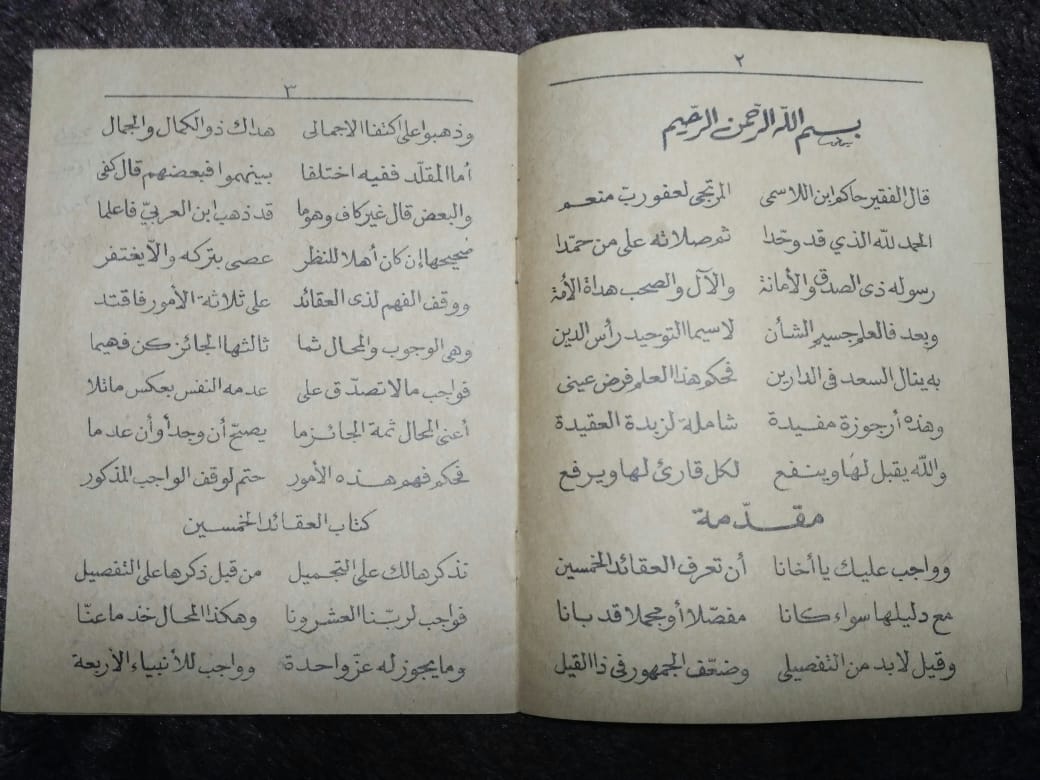 ٢
بسم الله الرحمن الرحيم
قال الفقير حاكم ابن اللاسمى المرتجى لعفو رب منعم
الحمد لله الذي قد وحّدا ثم صلاته على من حمّدا
رسوله ذى الصدق والأمانة والآل والصحب هداة الأمّة
وبعد فالعلم جسيم الشأن لاسيما التوحيد رأس الدين
به ينال السعد فى الدارين فحكم هذا العلم فرض عينى
وهذه أرجوزة مفيدة شاملة لزبدة العقيدة
والله يقبل لها وينفع لكل قارئ لها ويرفع
مقدّمة
وواجب عليك يا أخانا أن تعرف العقائد الخمسين
مع دليلها سواء كانا مفصّلا أو مجملا قد بانا
وقيل لابد من التفصيلى وضعّف الجمهور فى ذا القيل
٣
وذهبوا على اكتفا الاجمالى هداك ذو الكمال والجمال
أما المقلّد ففيه اختلفا بينهموا فبعضهم قال كفى
والبعض قال غير كاف وهو ما قد ذهب ابن العربيّ فاعلما
صحيحها إن كان أهلا للنظر عصى بتركه والا يغتفر
ووقف الفهم لذى العقائد على ثلاثة الأمور فاقتد
وهى الوجوب والمحال ثما ثالثها الجائز كن فهيما
فواجب ما لا تصدّق على عدمه النفس بعكس ماتلا
أعنى المحال ثمة الجائز ما يصحّ أن وجد أو أن عدما
فحكم فهم هذه الأمور حتم لوقف الواجب المذكور
كتاب العقائد الخمسين
تذكرها لك على التجميل من قبل ذكرها على التفصيل
فواجب لربّنا العشرونا وهكذا المحال خذ ماعنّا
وما يجوز له عزّ واحدة وواجب للأنبياء الأربعة